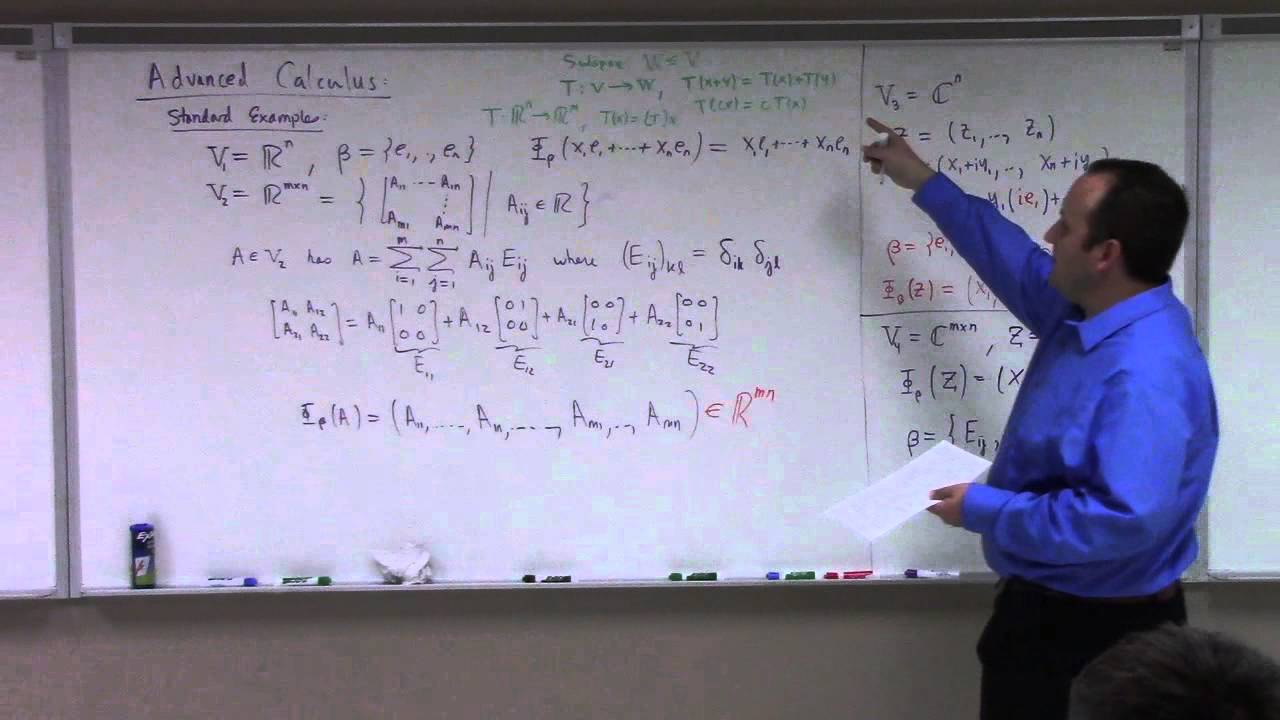 Advanced Calculus:
Suppose W ≤ V
T: V → W, T(x+y) = T(x)+T(y)
T(cx) = cT(x)
T: ℝⁿ → ℝᵐ, T(x) = [T]x
Standard Examples:
V₁ = ℝⁿ, β = {e₁, , eₙ} Φᵦ(x₁e₁+⋯+xₙeₙ) = x₁e₁+⋯+xₙeₙ
V₂ = ℝᵐˣⁿ = { [A₁₁ ⋯ A₁ₙ
⋮
Aₘ₁ Aₘₙ] | Aᵢⱼ ∈ ℝ }
A ∈ V₂ has A = ∑ᵢ₌₁ᵐ ∑ⱼ₌₁ⁿ Aᵢⱼ Eᵢⱼ where (Eᵢⱼ)ₖₗ = δᵢₖ δⱼₗ
[A₁₁ A₁₂
A₂₁ A₂₂] = A₁₁ [1 0
0 0] + A₁₂ [0 1
0 0] + A₂₁ [0 0
1 0] + A₂₂ [0 0
0 1]
E₁₁ E₁₂ E₂₁ E₂₂
Φᵦ(A) = (A₁₁, ...., A₁ₙ, ...., Aₘ₁, .., Aₘₙ) ∈ ℝᵐⁿ
V₃ = ℂⁿ
Z = (Z₁, ..., Zₙ)
(x₁+iy₁, .., xₙ+iyₙ)
y₁(ie₁)+
β = {e₁,
Φᵦ(Z) = (x₁,
V₄ = ℂᵐˣⁿ, Z =
Φᵦ(Z) = (X
β = {Eᵢⱼ,
EX